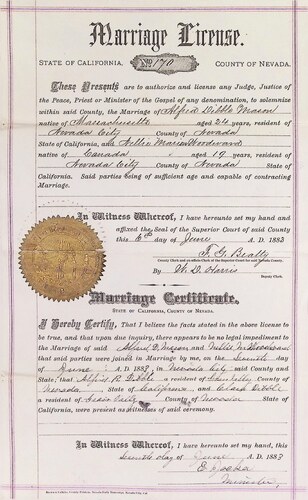 Marriage License.
STATE OF CALIFORNIA, No. 170 COUNTY OF NEVADA.
These Presents are to authorize and license any Judge, Justice
of the Peace, Priest or Minister of the Gospel of any denomination, to solemnize
within said County, the marriage of Alfred Dibble Mason
native of Massachusetts aged 24 years, resident of
Nevada City County of Nevada
State of California, and Nellie Maria Woodward
native of Canada aged 19 years, resident of
Nevada City County of Nevada State of
California. Said parties being of sufficient age and capable of contracting
Marriage.
In Witness Whereof, I have hereunto set my hand and
affixed the Seal of the Superior Court of said County
this 6th day of June A. D. 1883
F. G. Beatty
County Clerk and ex-officio Clerk of the Superior Court for said County.
By W. D. Harris
Deputy Clerk.
Marriage Certificate.
STATE OF CALIFORNIA, COUNTY OF NEVADA.
I Hereby Certify, That I believe the facts stated in the above license to
be true, and that upon due inquiry, there appears to be no legal impediment to
the Marriage of said Alfred D. Mason and Nellie M. Woodward
that said parties were joined in Marriage by me, on the Seventh day
of June A. D. 1883 in Nevada City said County and
State; that Alfred B. Dibble a resident of County of
Nevada State of California and Dibble a
resident of Valley County of Nevada State of
California, were present as witnesses of said ceremony.
In Witness Whereof, I have hereunto set my hand, this
Seventh day of June A. D. 1883
E.
Minister